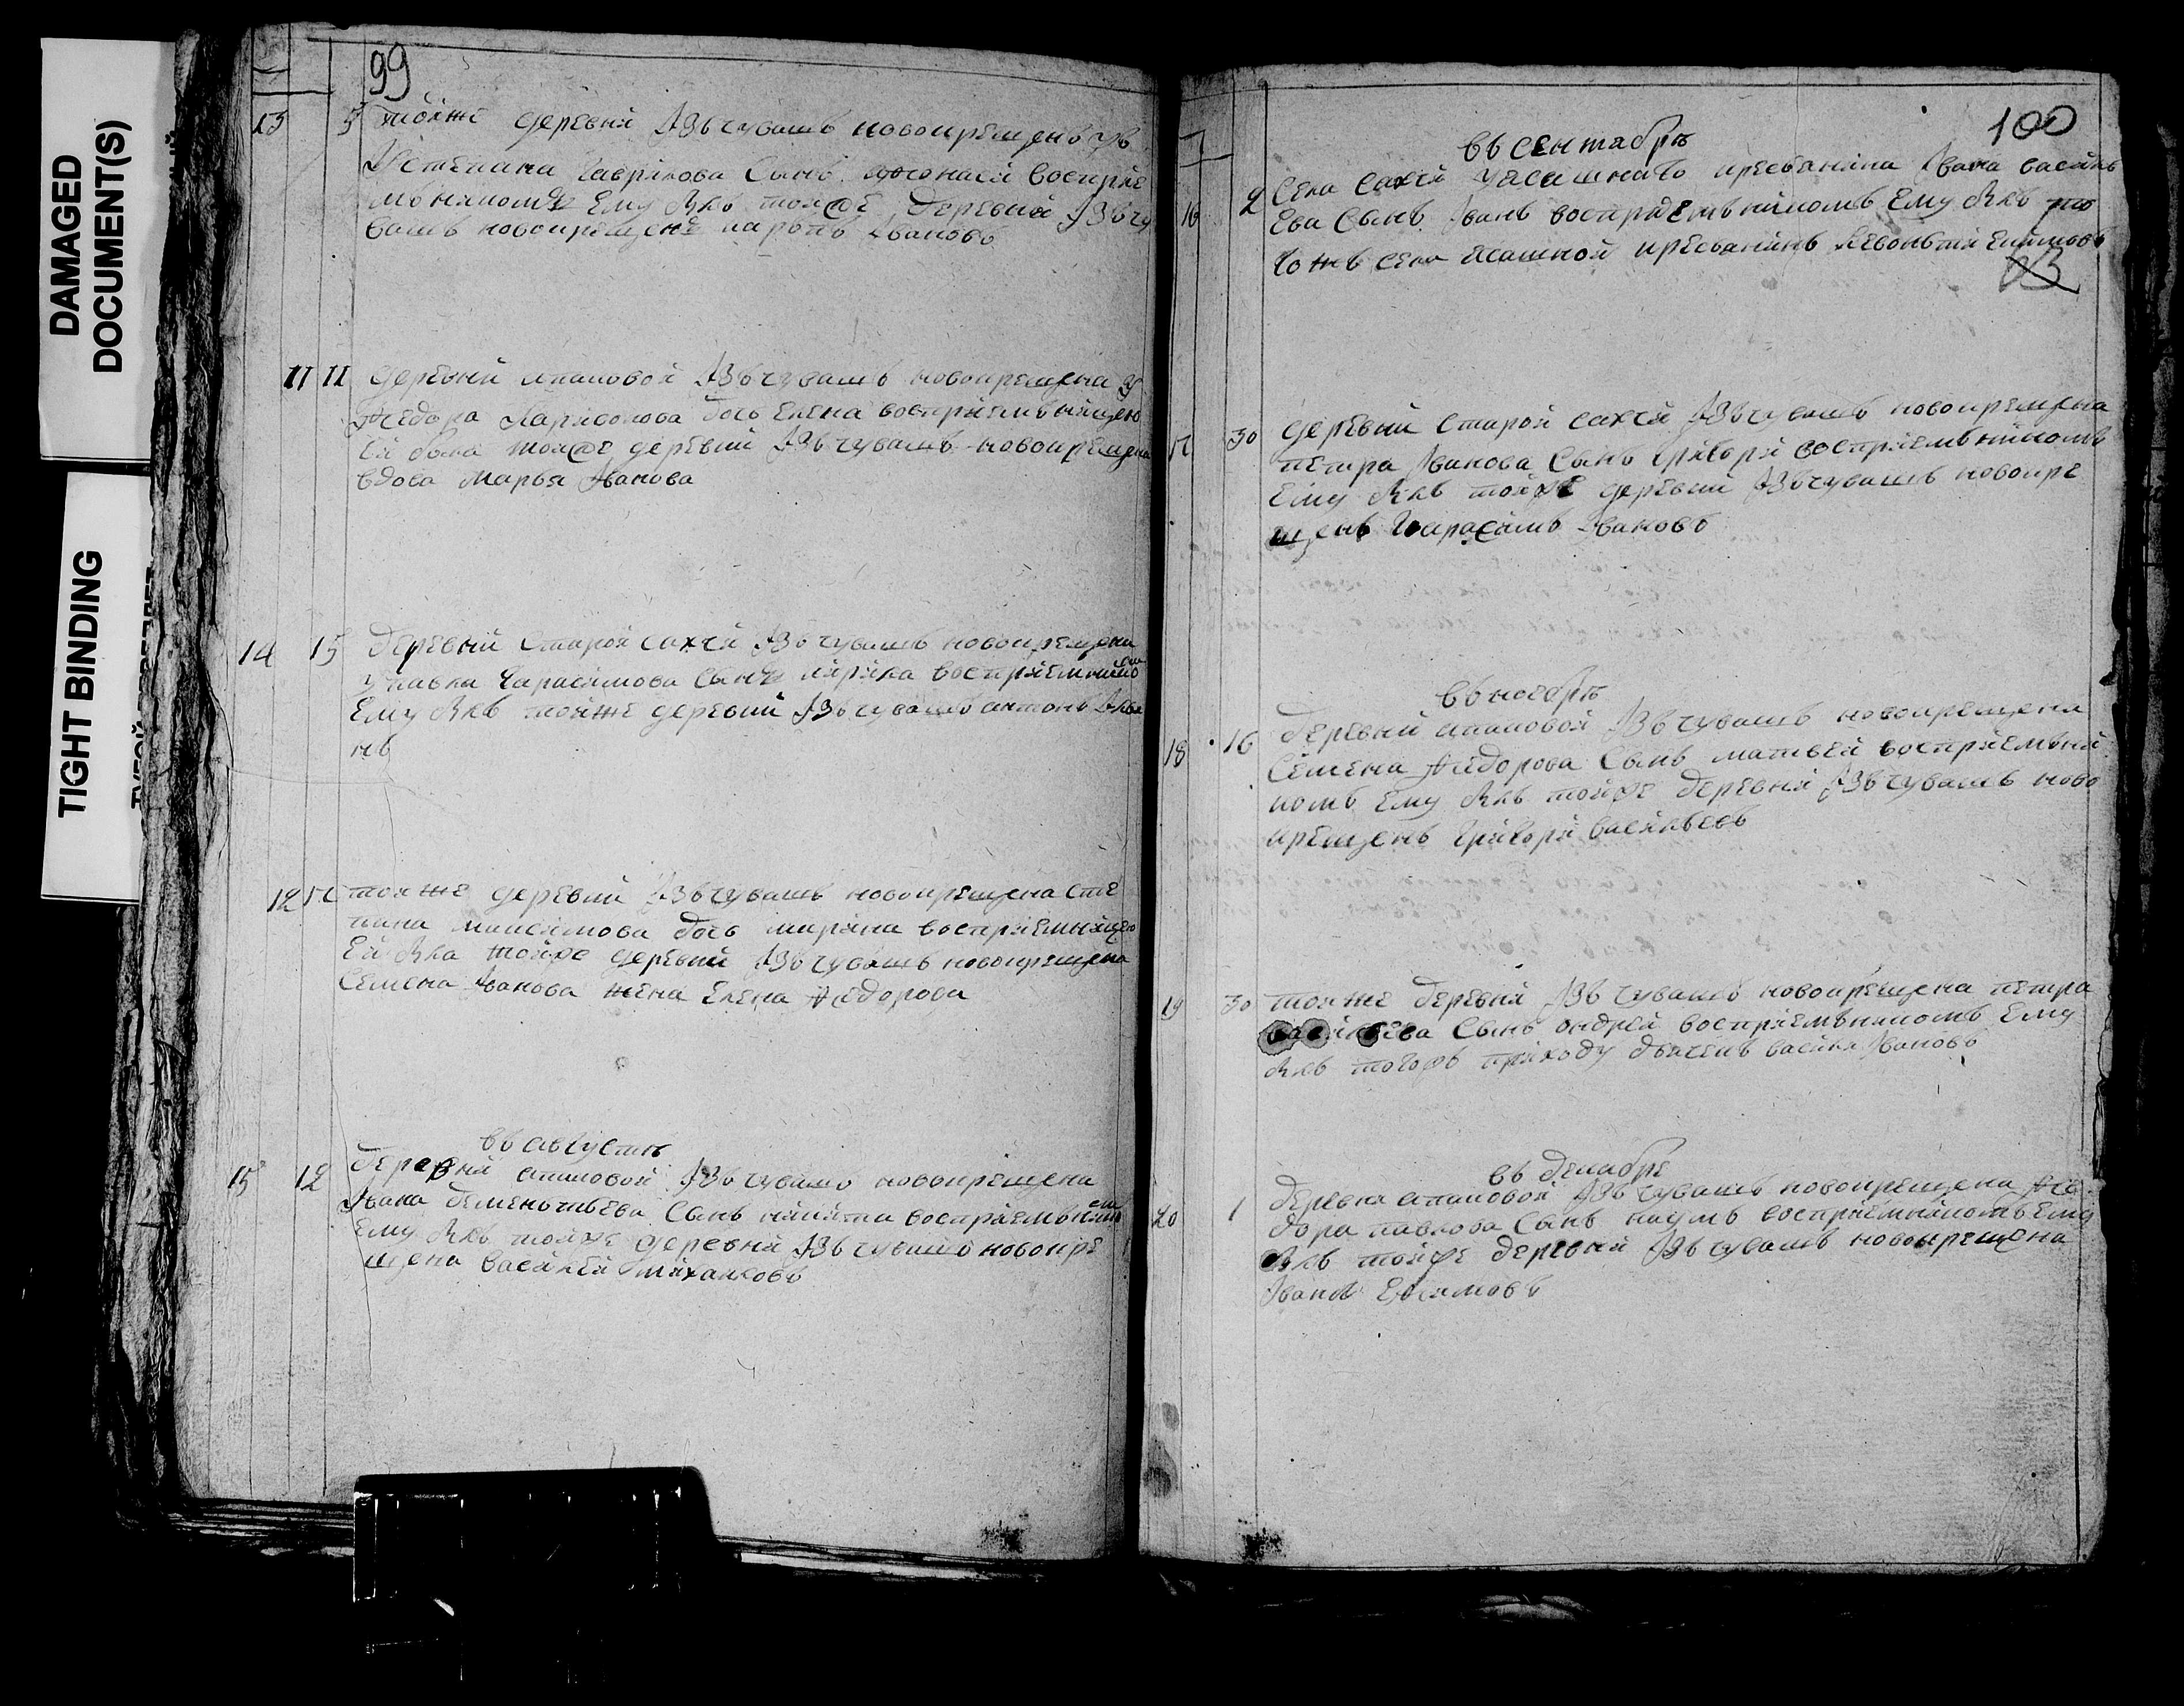 DAMAGED
DOCUMENT(S)
TIGHT BINDING
99
13 5 тойже деревни изъ чувашъ новокрещенъ ув
Степана Гаврилова сынъ афонасей восприе
мъникомъ ему якъ тойже деревни изъ чу
вашъ новокрещенъ ларонъ Ивановъ
11 11 деревни апановой изъ чувашъ новокрещена у
Федора Ларивонова дочь Елена восприемъницею
ей была тойже деревни изъ чувашъ новокрещена
вдова Марья Иванова
14 15 деревни Старой сахчи изъ чувашъ новокрещена
у павла Гарасимова сынъ кирила восприемникомъ
Ему якъ тойже деревни изъ чувашъ антонъ
нъ
12 тойже деревни изъ чувашъ новокрещена Сте
пана максимова дочь марина восприемницею
ей яка тойже деревни изъ чувашъ новокрещена
Семена Иванова жена Елена Федорова
въ августѣ
15 12 деревни апановой изъ чувашъ новокрещена
Ивана дементьева сынъ никита восприемъникомъ
Ему якъ тойже деревни изъ чувашъ новокре
щена Василей михаиловъ
100
въ сентабрѣ
16 2 Села Сахчи уясашнаго кресьянина Ивана василь
ева Сынъ Иванъ восприемъникомъ Ему якъ то
гожъ села ясашной кресьянинъ Левонътей Екимовъ
17 30 деревни Старой сахчи изъ чувашъ новокрещена
петра Иванова Сынъ Григорей восприемъникомъ
Ему якъ тойже деревни изъ чувашъ новокре
щенъ Гарасимъ Ивановъ
въ ноебрѣ
18 16 деревни апановой изъ чувашъ новокрещена
Семена Федорова Сынъ матвей восприемъни
комъ Ему якъ тойже деревни изъ чувашъ ново
крещенъ Григорей васильевъ
19 30 тойже деревни изъ чувашъ новокрещена петра
васильева Сынъ ондрей восприемъникомъ Ему
якъ тогожъ приходу дьячекъ василей Ивановъ
въ декабре
20 1 деревни апановой изъ чувашъ новокрещена Фе
дора павлова Сынъ наумъ восприемникомъ Ему
якъ тойже деревни изъ чувашъ новокрещена
Иванъ Ефимовъ